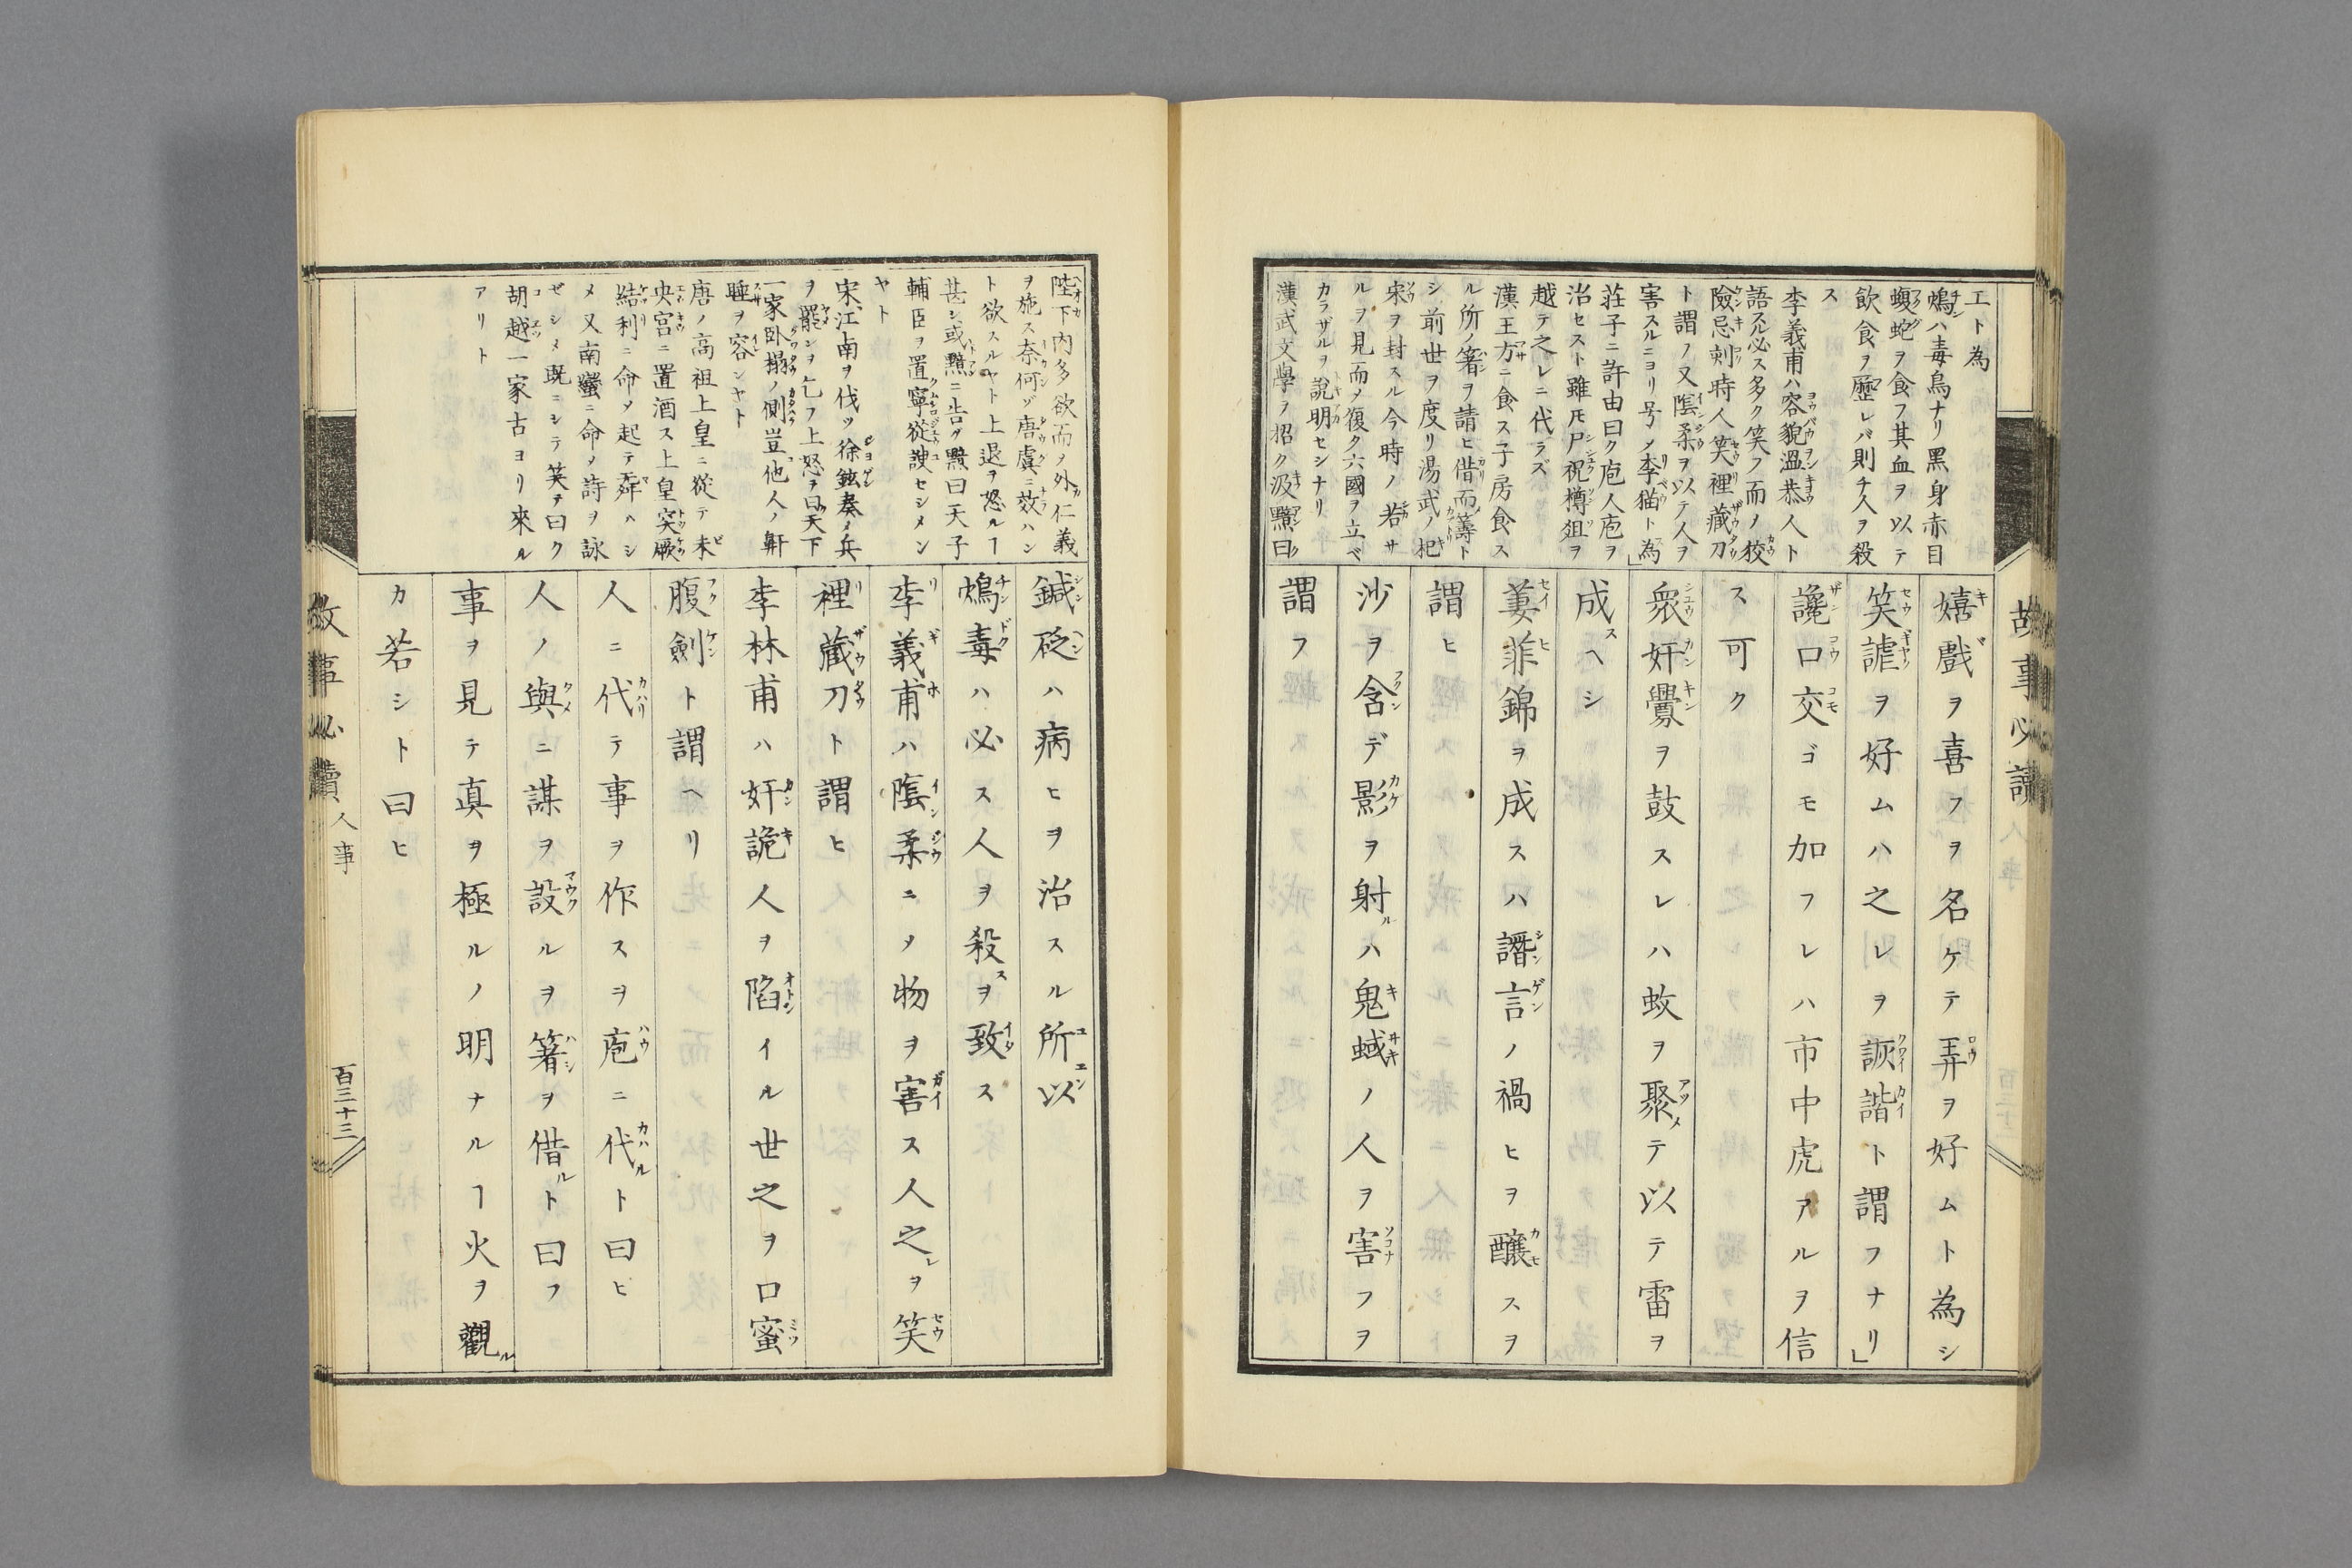 故事必讀
工ト為
鴆ハ毒鳥ナリ黒身赤目
蝮蛇ヲ食フ其血ヲ以テ
飲食ヲ歴レバ則チ人ヲ殺
ス
李義甫ハ容貌溫恭人ト
語スル必ス多ク笑フ而ノ狡
險忌刻時人笑裡藏刀
ト謂フ又陰柔ヲ以テ人ヲ
害スルニヨリ号メ李猫ト為」
莊子ニ許由曰ク庖人庖ヲ
治セスト雖𪜈尸祝樽俎ヲ
越テ之レニ代ラズ
漢王方ニ食ス子房食ス
ル所ノ箸ヲ請ヒ借而籌ト
シ前世ヲ度リ湯武ノ杞
宋ヲ封スル今時ノ若サ
ルヲ見而メ復タ六國ヲ立ベ
カラザルヲ説明セシナリ
漢武文學ヲ招ク汲黯曰
嬉戲ヲ喜フヲ名ケテ弄ヲ好ムト為シ
笑謔ヲ好ムハ之レヲ詼諧ト謂フナリ」
讒口交ゴモ加フレハ市中虎アルヲ信
ス可ク
衆奸釁ヲ鼓スレハ蚊ヲ聚メテ以テ雷ヲ
成スヘシ
萋菲錦ヲ成スハ譖言ノ禍ヒヲ釀スヲ
謂ヒ
沙ヲ含デ影ヲ射ルハ鬼蜮ノ人ヲ害フヲ
謂フ
陛下内多欲而メ外仁義
ヲ施ス奈何ゾ唐虞ニ效ハン
ト欲スルヤト上退テ怒ルヿ
甚シ或黯ニ告グ黯曰天子
輔臣ヲ置寧從諛セシメン
ヤト
宋江南ヲ伐ツ徐鉉奏メ兵
ヲ罷ンヲ乞フ上怒テ曰天下
一家卧榻ノ側豈他人ノ鼾
睡ヲ容ンヤト
唐ノ高祖上皇ニ從テ未
央宮ニ置酒ス上皇突厥
結利ニ命メ起テ舞ハシ
メ又南蠻ニ命メ詩ヲ詠
ゼシメ既ニシテ笑テ曰ク
胡越一家古ヨリ來ル
アリト
鍼砭ハ病ヒヲ治スル所以
鴆毒ハ必ス人ヲ殺スヲ致ス
李義甫ハ陰柔ニメ物ヲ害ス人之レヲ笑
裡藏刀ト謂ヒ
李林甫ハ奸詭人ヲ陷イル世之ヲ口蜜
腹劍ト謂ヘリ
人ニ代テ事ヲ作スヲ庖ニ代ルト曰ヒ
人ノ與ニ謀ヲ設ルヲ箸ヲ借ルト曰フ
事ヲ見テ真ヲ極ルノ明ナルヿ火ヲ觀ル
カ若シト曰ヒ
故事必讀 人事 百三十三